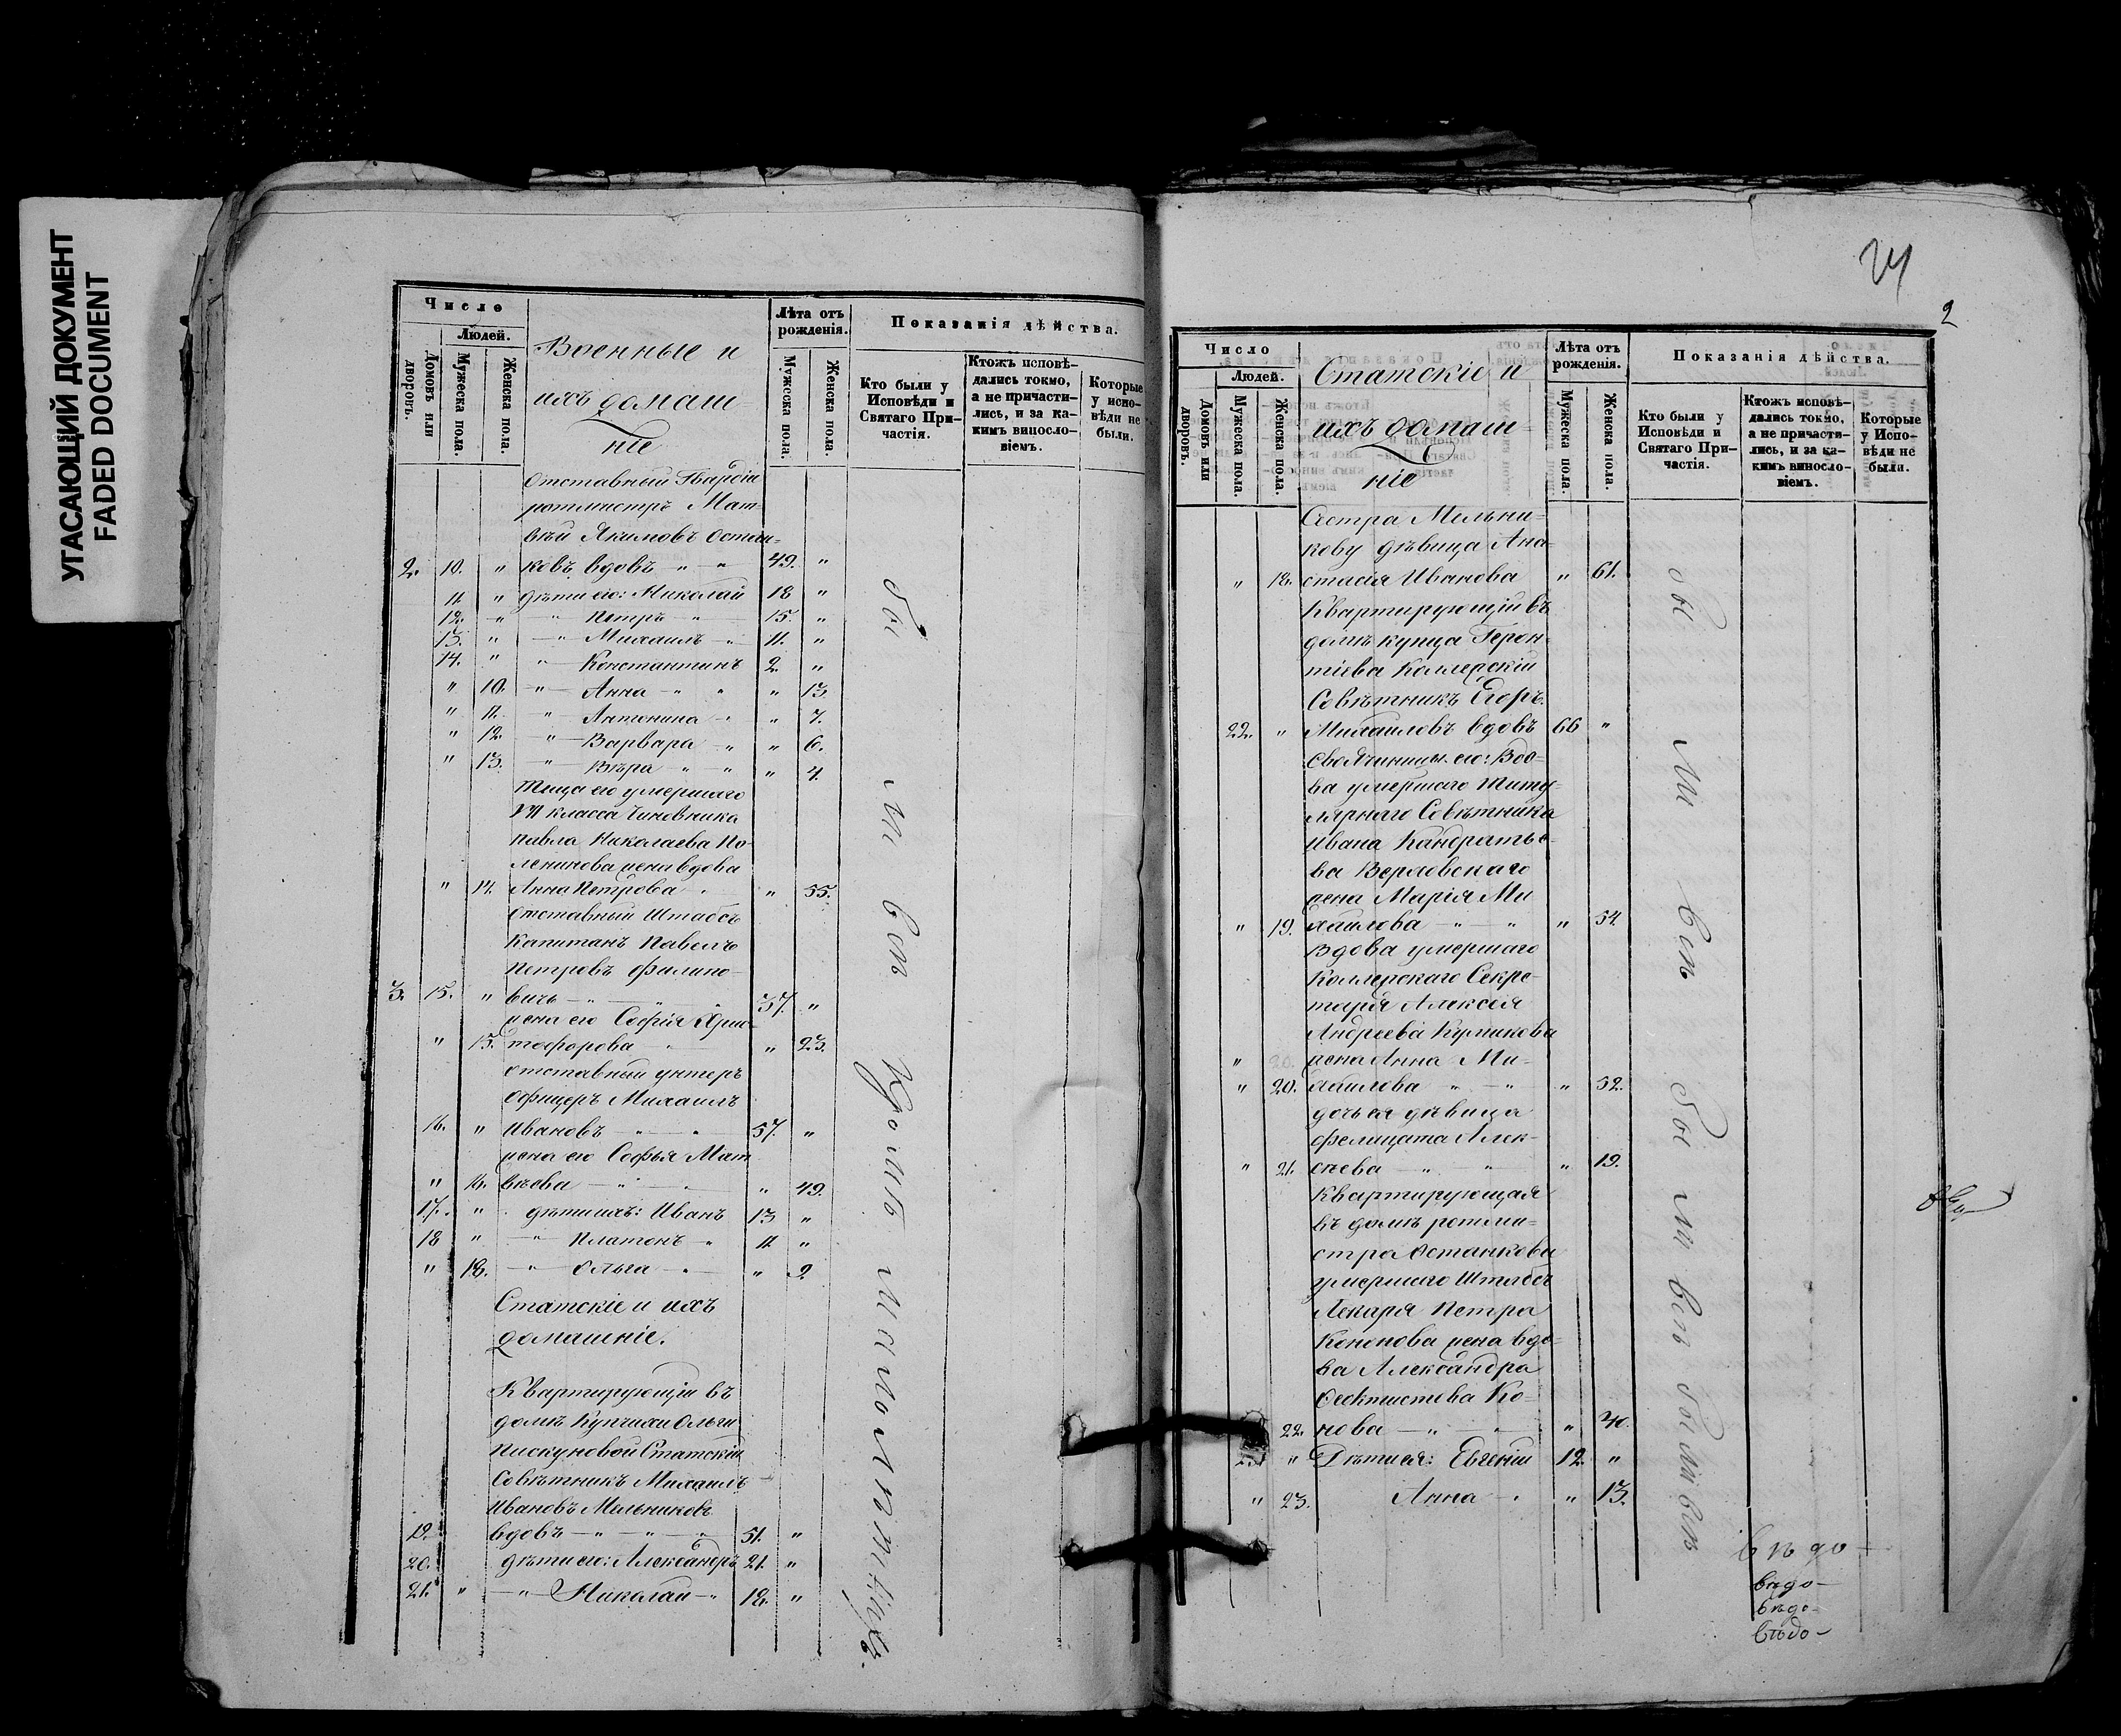 УГАСАЮЩИЙ ДОКУМЕНТ
FADED DOCUMENT
Число
Людей.
Домовъ или дворовъ.
Мужеска пола.
Женска пола.
Военные и
ихъ домаш
ніе
Лѣта отъ рожденія.
Мужеска пола.
Женска пола.
Показанія дѣйства.
Кто были у Исповѣди и Святаго При-
частія.
Ктожъ исповѣ-
дались токмо,
а не причасти-
лись, и за ка-
кимъ виносло-
віемъ.
Которые
у испо-
вѣди не
были.
Отставный Гвардіи
ротмистръ Мат-
вѣй Якимовъ Остан-
2. 10. " ковъ вдовъ " " 49. "
11. " дѣти его: Николай 18 "
12. " " Петръ " 15. "
13. " " Михаилъ " 11. "
14. " " Константинъ 2. "
" 10. " Анна " " " 13
" 11. " Антонина " " 7.
" 12. " Варвара " " 6.
" 13. " Вѣра " " " 4.
Теща его умершаго
VII класса Чиновника
Павла Николаева По-
жена вдова
" 14. Анна Петрова " " 55.
Отставный Штабсъ
Капитанъ Павелъ
Петровъ Филипо-
3. 15. " вичь " " " 37. "
жена его Софія Хрис-
" 15. тофорова " " 23.
отставный унтеръ
Офицеръ Михаилъ
16. " Ивановъ " " 57. "
жена его Софья Мат
" 16. вѣева " " " 49.
17. " дѣти ихъ: Иванъ 13 "
18 " " Платонъ " 11 "
" 18. " Ольга " " 2
Статскіе и ихъ
домашніе.
Квартирующій въ
домѣ Купчихи Ольги
Пискуновой Статскій
Совѣтникъ Михаилъ
Ивановъ Мельниковъ
19. вдовъ " " " 51. "
20. дѣти его: Александръ 21. "
21. " " Николай " 18. "
бы ли вси Кромѣ малолѣтнихъ.
24
2
Число
Людей.
Домовъ или дворовъ.
Мужеска пола.
Женска пола.
Статскіе и
ихъ домаш-
ніе
Лѣта отъ рожденія.
Мужеска пола.
Женска пола.
Показанія дѣйства.
Кто были у
Исповѣди и
Святаго При-
частія.
Ктожъ исповѣ-
дались токмо,
а не причасти-
лись, и за ка-
кимъ виносло-
віемъ.
Которые
у Испо-
вѣди не
были.
Сестра Мельни-
кову дѣвица Ана-
" 18. стасія Иванова " 61.
Квартирующій въ
домѣ купца Герон-
тіева Коллежскій
Совѣтникъ Егоръ
22. " Михаиловъ вдовъ 66 "
Своячиницы его: Вдо-
ва умершаго Титу-
лярнаго Совѣтника
Ивана Кандратье-
ва Верховскаго
жена Марія Ми
" 19. хаилова " " " 54.
Вдова умершаго
Коллежскаго Секре-
таря Алексѣя
Андреева Куликова
" жена Анна Ми-
" 20. хаилова " " " 52.
дочь ея дѣвица
Фелицата Алек-
" 21. сѣева " " " 19.
Квартирующая
въ домѣ ротми-
стра Останкова
умершаго Штабсъ
Лекаря Петра
Кононова жена вдо-
ва Александра
Феоктистова Ко-
22. нова " " " 40.
23. " Дѣти ея: Евгеній 12. "
" 23. Анна " " 13.